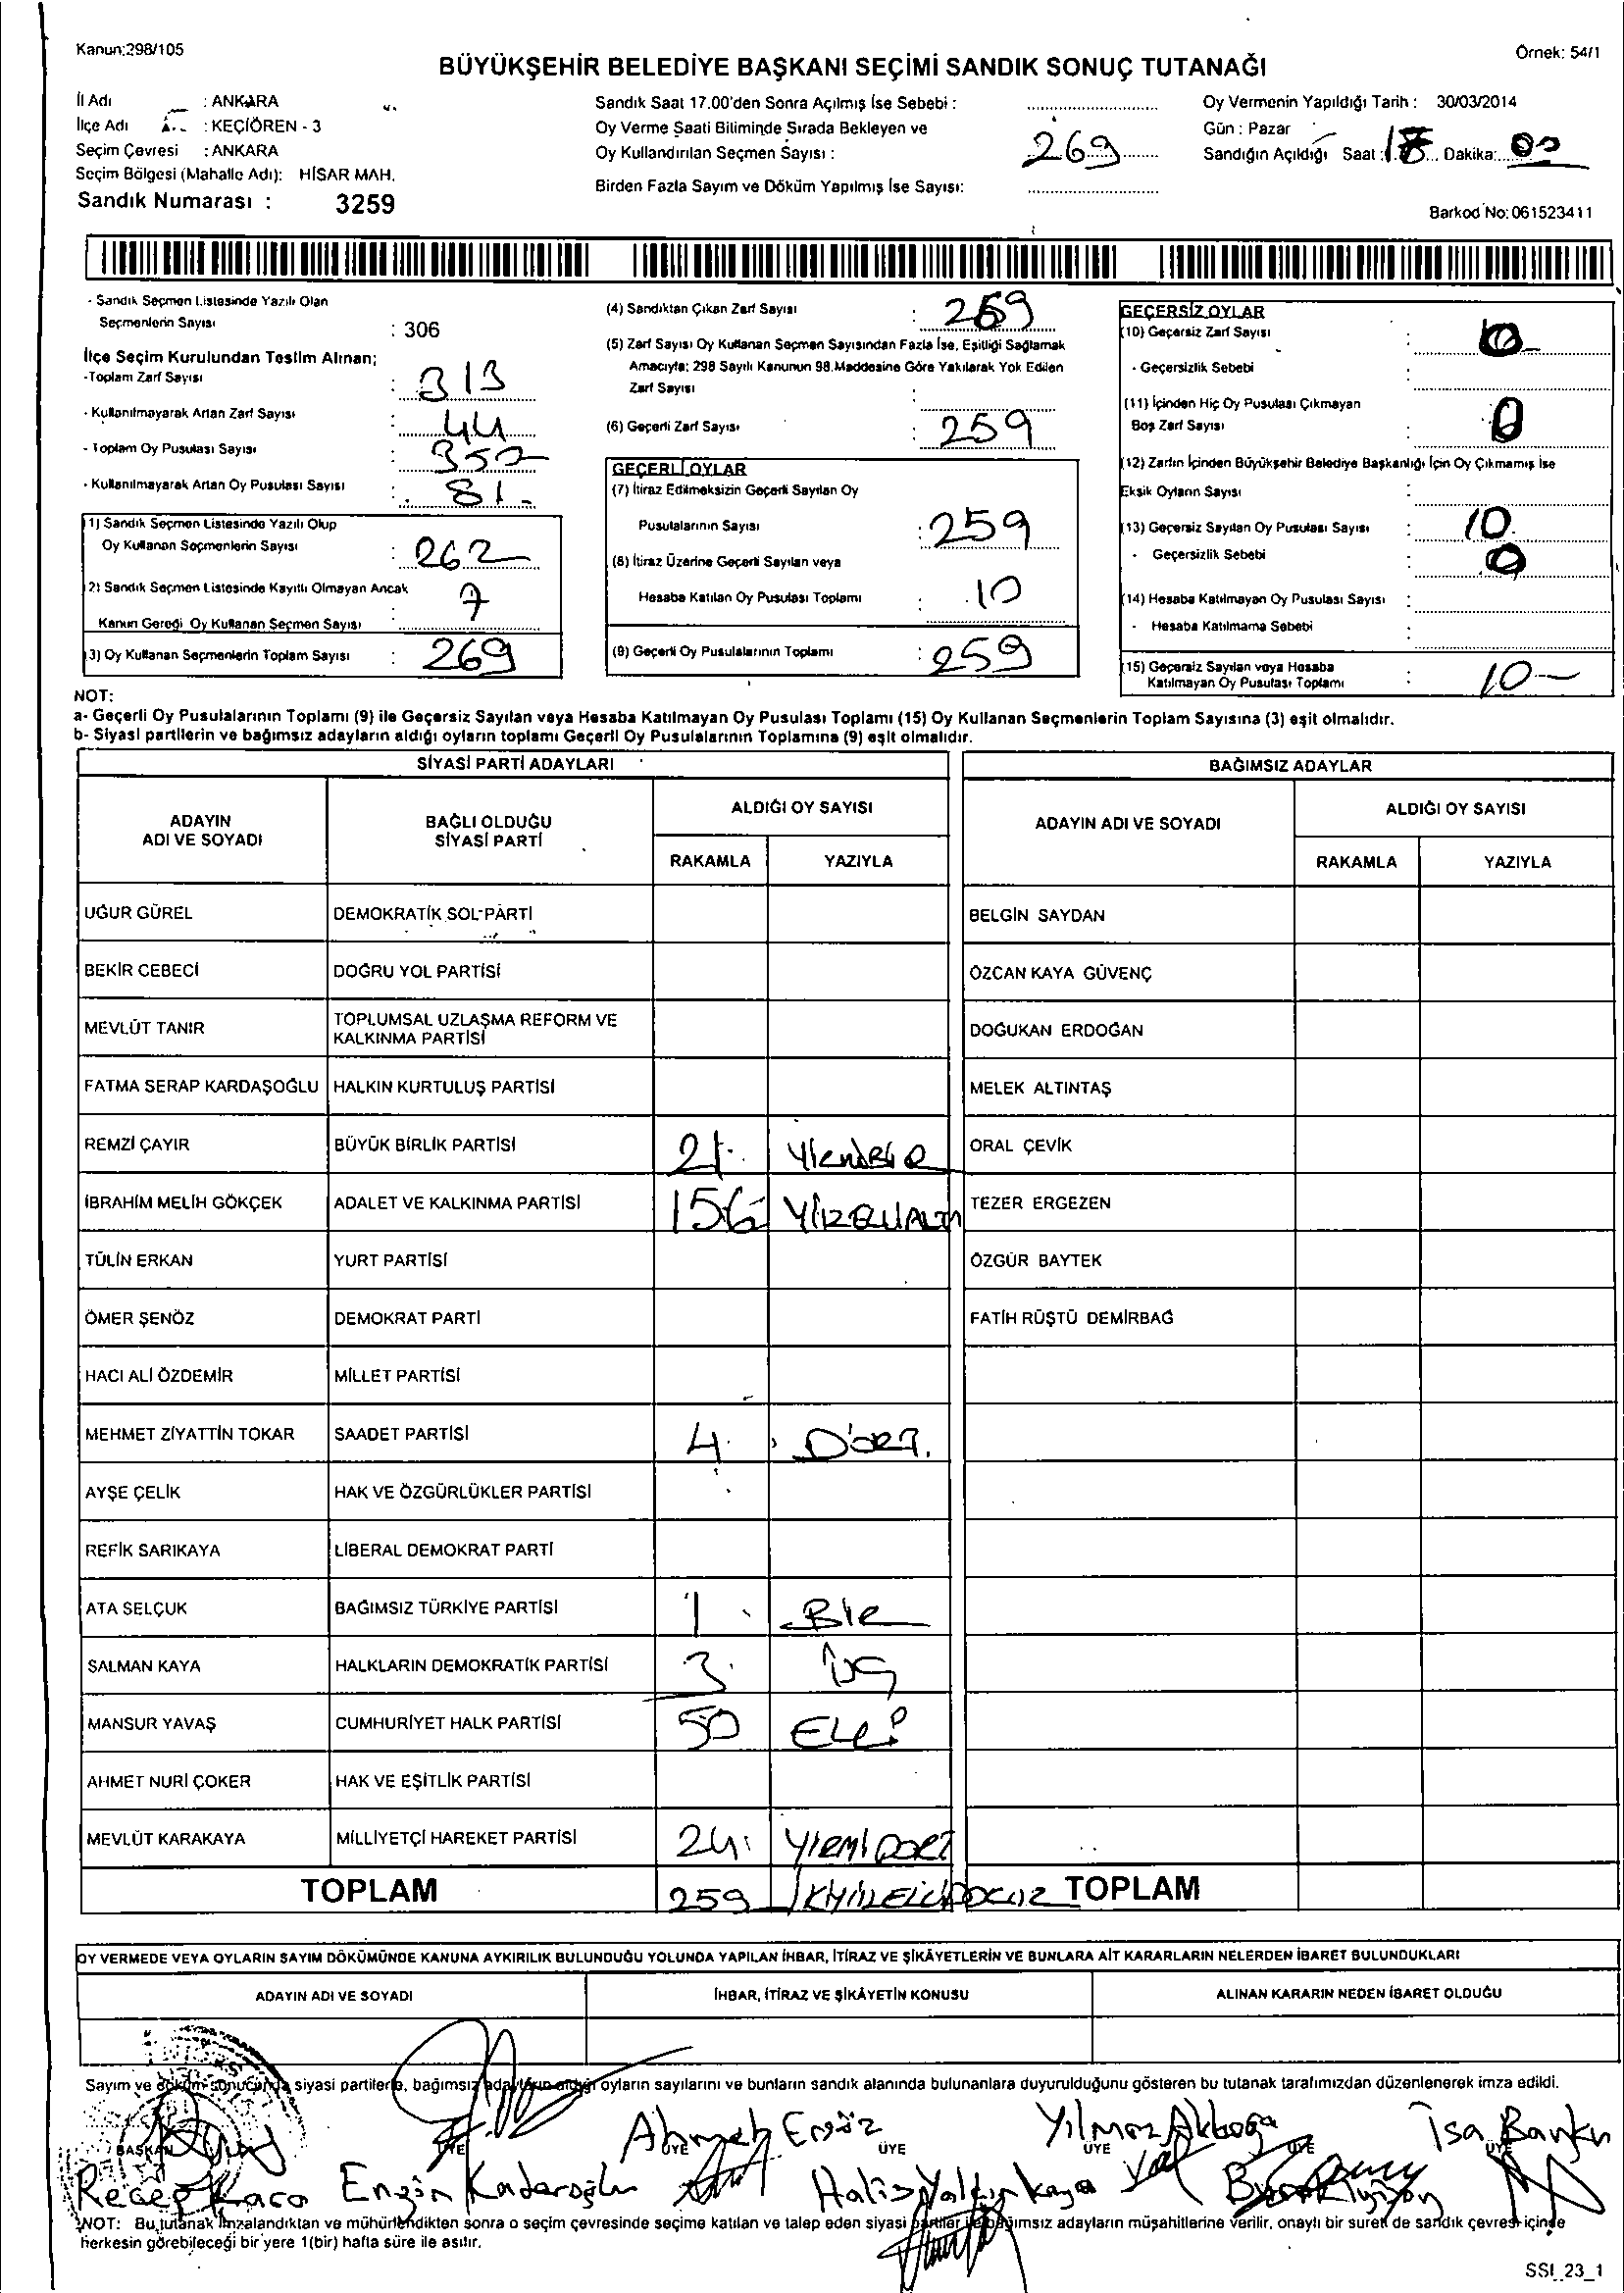 Kanun:298/105
Örnek: 54/1
BÜYÜKŞEHİR BELEDİYE BAŞKANI SEÇİMİ SANDIK SONUÇ TUTANAĞI
İl Adı : ANKARA
İlçe Adı : KEÇİÖREN - 3
Seçim Çevresi : ANKARA
Seçim Bölgesi (Mahalle Adı): HİSAR MAH.
Sandık Numarası : 3259
Sandık Saat 17.00'den Sonra Açılmış İse Sebebi :
Oy Verme Saati Bitiminde Sırada Bekleyen ve
Oy Kullandırılan Seçmen Sayısı : 269
Birden Fazla Sayım ve Döküm Yapılmış İse Sayısı:
Oy Vermenin Yapıldığı Tarih : 30/03/2014
Gün : Pazar
Sandığın Açıldığı Saat : Dakika: 00
Barkod No: 061523411
- Sandık Seçmen Listesinde Yazılı Olan
Seçmenlerin Sayısı : 306
İlçe Seçim Kurulundan Teslim Alınan;
-Toplam Zarf Sayısı : 313
- Kullanılmayarak Artan Zarf Sayısı : 44
- Toplam Oy Pusulası Sayısı : 350
- Kullanılmayarak Artan Oy Pusulası Sayısı : 81
1) Sandık Seçmen Listesinde Yazılı Olup
Oy Kullanan Seçmenlerin Sayısı : 262
2) Sandık Seçmen Listesinde Kayıtlı Olmayan Ancak
Kanun Gereği Oy Kullanan Seçmen Sayısı : 7
3) Oy Kullanan Seçmenlerin Toplam Sayısı : 269
(4) Sandıktan Çıkan Zarf Sayısı : 269
(5) Zarf Sayısı Oy Kullanan Seçmen Sayısından Fazla İse, Eşitliği Sağlamak
Amacıyla; 298 Sayılı Kanunun 98.Maddesine Göre Yakılarak Yok Edilen
Zarf Sayısı :
(6) Geçerli Zarf Sayısı : 259
GEÇERLİ OYLAR
(7) İtiraz Edilmeksizin Geçerli Sayılan Oy
Pusulalarının Sayısı : 259
(8) İtiraz Üzerine Geçerli Sayılan veya
Hesaba Katılan Oy Pusulası Toplamı : 10
(9) Geçerli Oy Pusulalarının Toplamı : 259
GEÇERSİZ OYLAR
(10) Geçersiz Zarf Sayısı :
- Geçersizlik Sebebi :
(11) İçinden Hiç Oy Pusulası Çıkmayan
Boş Zarf Sayısı : 0
(12) Zarfın İçinden Büyükşehir Belediye Başkanlığı İçin Oy Çıkmamış İse
Eksik Oyların Sayısı :
(13) Geçersiz Sayılan Oy Pusulası Sayısı : 10
- Geçersizlik Sebebi : 0
(14) Hesaba Katılmayan Oy Pusulası Sayısı :
- Hesaba Katılmama Sebebi :
(15) Geçersiz Sayılan veya Hesaba
Katılmayan Oy Pusulası Toplamı : 10
NOT:
a- Geçerli Oy Pusulalarının Toplamı (9) ile Geçersiz Sayılan veya Hesaba Katılmayan Oy Pusulası Toplamı (15) Oy Kullanan Seçmenlerin Toplam Sayısına (3) eşit olmalıdır.
b- Siyasi partilerin ve bağımsız adayların aldığı oyların toplamı Geçerli Oy Pusulalarının Toplamına (9) eşit olmalıdır.
SİYASİ PARTİ ADAYLARI
BAĞIMSIZ ADAYLAR
ADAYIN ADI VE SOYADI
BAĞLI OLDUĞU SİYASİ PARTİ
ALDIĞI OY SAYISI
RAKAMLA YAZIYLA
ADAYIN ADI VE SOYADI
ALDIĞI OY SAYISI
RAKAMLA YAZIYLA
UĞUR GÜREL DEMOKRATİK SOL PARTİ BELGİN SAYDAN
BEKİR CEBECİ DOĞRU YOL PARTİSİ ÖZCAN KAYA GÜVENÇ
MEVLÜT TANIR TOPLUMSAL UZLAŞMA REFORM VE KALKINMA PARTİSİ DOĞUKAN ERDOĞAN
FATMA SERAP KARDAŞOĞLU HALKIN KURTULUŞ PARTİSİ MELEK ALTINTAŞ
REMZİ ÇAYIR BÜYÜK BİRLİK PARTİSİ 21 ORAL ÇEVİK
İBRAHİM MELİH GÖKÇEK ADALET VE KALKINMA PARTİSİ 156 YÜZELLİALTI TEZER ERGEZEN
TÜLİN ERKAN YURT PARTİSİ ÖZGÜR BAYTEK
ÖMER ŞENÖZ DEMOKRAT PARTİ FATİH RÜŞTÜ DEMİRBAĞ
HACI ALİ ÖZDEMİR MİLLET PARTİSİ
MEHMET ZİYATTİN TOKAR SAADET PARTİSİ 4 DÖRT.
AYŞE ÇELİK HAK VE ÖZGÜRLÜKLER PARTİSİ
REFİK SARIKAYA LİBERAL DEMOKRAT PARTİ
ATA SELÇUK BAĞIMSIZ TÜRKİYE PARTİSİ 1 BİR
SALMAN KAYA HALKLARIN DEMOKRATİK PARTİSİ 3 ÜÇ
MANSUR YAVAŞ CUMHURİYET HALK PARTİSİ 50 ELLİ
AHMET NURİ ÇOKER HAK VE EŞİTLİK PARTİSİ
MEVLÜT KARAKAYA MİLLİYETÇİ HAREKET PARTİSİ 24 YİRMİDÖRT
TOPLAM 259 İKİYÜZELLİDOKUZ TOPLAM
OY VERMEDE VEYA OYLARIN SAYIM DÖKÜMÜNDE KANUNA AYKIRILIK BULUNDUĞU YOLUNDA YAPILAN İHBAR, İTİRAZ VE ŞİKÂYETLERİN VE BUNLARA AİT KARARLARIN NELERDEN İBARET BULUNDUKLARI
ADAYIN ADI VE SOYADI İHBAR, İTİRAZ VE ŞİKÂYETİN KONUSU ALINAN KARARIN NEDEN İBARET OLDUĞU
Sayım ve döküm sonucunda siyasi partilerle, bağımsız adayların aldığı oyların sayılarını ve bunların sandık alanında bulunanlara duyurulduğunu gösteren bu tutanak tarafımızdan düzenlenerek imza edildi.
Ahmet Ersöz Yılmaz Akboğa İsa
BAŞKAN ÜYE ÜYE ÜYE ÜYE ÜYE ÜYE
Recep Kara Engin Kadaroğlu Halis Yalçınkaya
NOT: Bu tutanak imzalandıktan ve mühürlendikten sonra o seçim çevresinde seçime katılan ve talep eden siyasi partiler ile bağımsız adayların müşahitlerine verilir, onaylı bir sureti de sandık çevresi içinde
herkesin görebileceği bir yere 1(bir) hafta süre ile asılır.
SSI_23_1